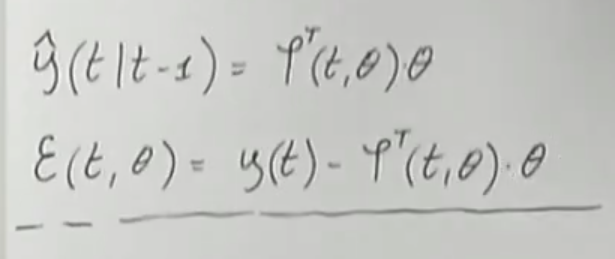 ŷ(t|t-1) = φᵀ(t,θ)·θ
ε(t,θ) = y(t) - φᵀ(t,θ)·θ